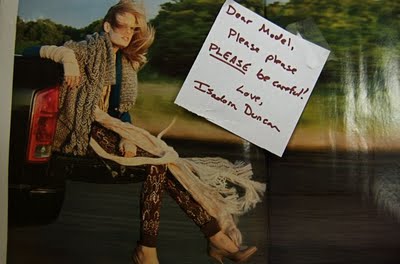 Dear Model,
Please please
PLEASE be careful!
Love,
Isadora Duncan